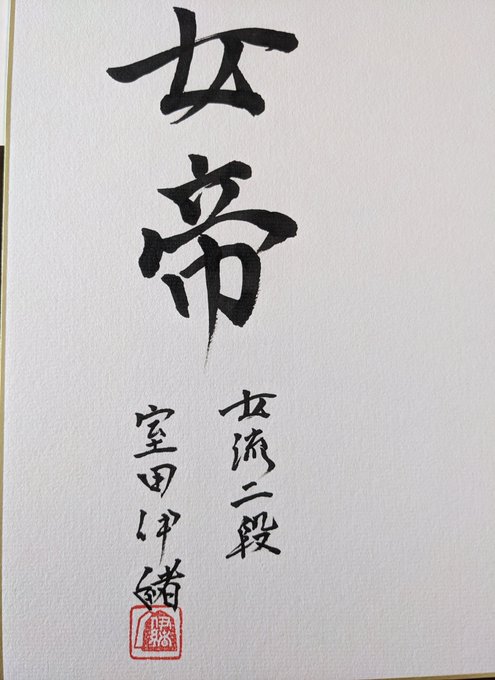 女帝
女流二段
室田伊緒